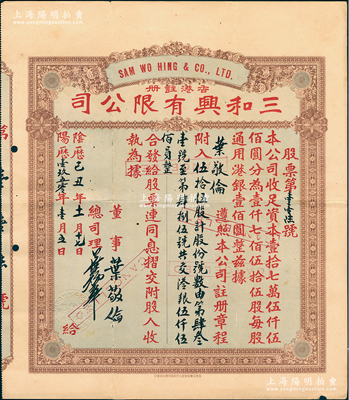 上海陽明拍賣
SAM WO HING & CO., LTD.
香港註冊
三和興有限公司
股票第 號
本公司收足資本壹拾七萬伍仟伍
佰圓分為壹仟七佰伍拾伍股每股
通用港銀壹佰圓整茲據
葉敬倫 遵照本公司註冊章程
附入伍拾伍股計股份號數由第肆叁
壹號至第 捌伍號共交港銀伍仟伍
佰員整
合發給股票連同息摺交附股人收
執為據
董事 葉敬倫
總司理
陰歷己丑年十一月 日
陽歷壹玖五零年壹月五日 給
上海陽明拍賣